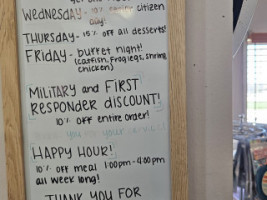 WEDNESDAY - 10% senior citizen
day!
THURSDAY - 15% off all desserts!
FRIDAY - buffet night!
(catfish, froglegs, shrimp,
chicken)
MILITARY and FIRST
RESPONDER DISCOUNT!
10% off entire order!
HAPPY HOUR!
10% off meal 1:00pm-4:00pm
all week long!
THANK YOU FOR